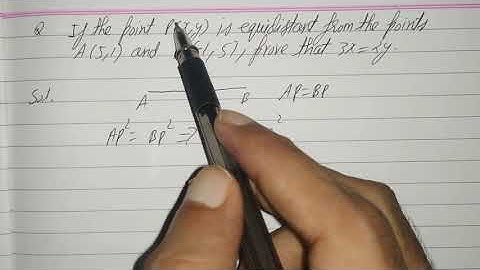 Q If the point P(x,y) is equidistant from the points
A(5,1) and 1,5), prove that 3x=2y.
Sol. A B AP=BP
AP²= BP² ⇒ ²